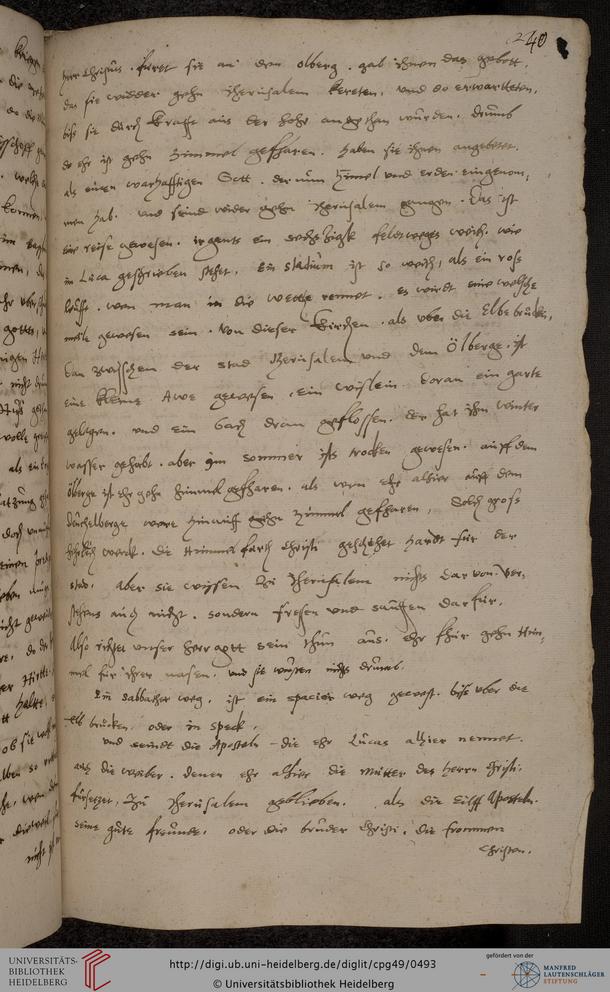 240
herr Christus. furet sie an den olberg. gab ihnen das gebott,
das sie widder gehn Jherusalem kereten, und do erwartteten,
biss sie durch krafft aus der hohe angethan wurden. drumb
do ehr ist gehn himmel gefharen. haben sie ihnen angebetet.
als einen warhafftigen Gott. der nun himel und erden eingenom,
men hab. und seind wider gehn Jherusalem gangen. Das ist
eine reise gewesen. irgents ein feldtweges weith. wie
in Luca geschrieben stehet. Ein stadium ist so weith, als ein ross
leufft. wen man in die wette rennet. es wirdt eine welsche
meile gewesen sein. von dieser kirchen. als uber die Elbebrucken,
Dan zwisschen der stad Jherusalem und dem Ölberge. ist
eine kleine Awe gewesen. ein wislein. doran ein garte
gelegen. und ein bach dran geflossen. der hat ihm winter
wasser gehabt. aber im sommer ists trocken gewesen. auff dem
ölberge ist ehr gehn himmel gefharen. als wen ehr alhier auff dem
were hinauff gehn himmel gefharen, Solch gross
werck. die Himmelfarth Christi geschiehet hardt fur der
stad. aber sie wissen zu Jherusalem nichts darvon. ver,
stehens auch nicht. sondern fressen und sauffen darfur.
Also richtet unser herr gott sein thun aus. ehr fhir gehn Him,
mel fur ihrer nasen. und sie wusten nichts drumb.
Ein sabbather weg. ist ein spacier weg gewest. biss uber die
elb brucken. oder in speck.
und seindt die Aposteln - die ehr Lucas alhier nennet.
auch die weiber. denen ehr alhier die mutter des herrn Christi.
fursetzet, zu Jherusalem geblieben. als die eilff Aposteln.
seine gute freunde. oder die bruder Christi. die frommen
Christen.
UNIVERSITÄTS-
BIBLIOTHEK
HEIDELBERG
http://digi.ub.uni-heidelberg.de/diglit/cpg49/0493
© Universitätsbibliothek Heidelberg
gefördert von der
MANFRED
LAUTENSCHLÄGER
STIFTUNG